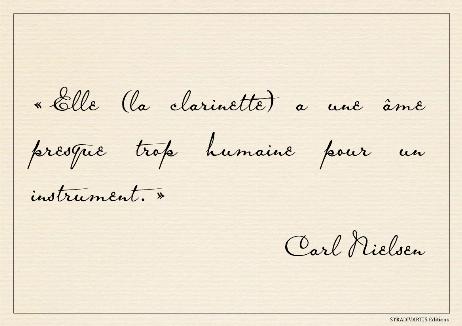 « Elle (la clarinette) a une âme
presque trop humaine pour un
instrument. »
Carl Nielsen
STRADIVARIUS Editions